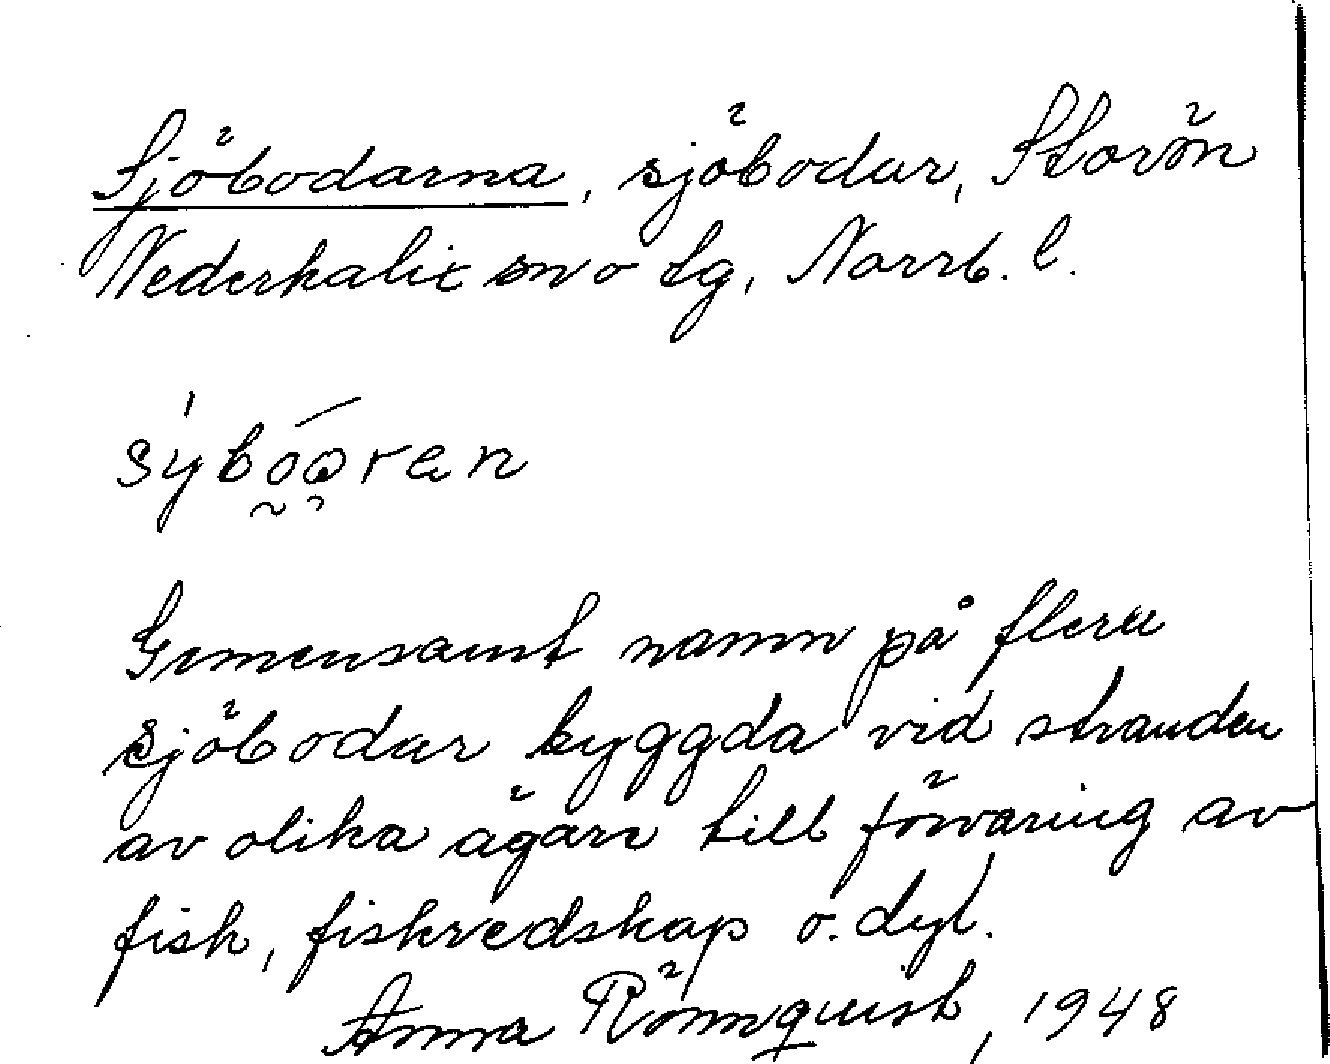 Sjöbodarna, sjöbodar, Storön
Nederkalix sn o tg, Norrb. l.
sýbo̰o̡ren
Gemensamt namn på flera
sjöbodar byggda vid stranden
av olika ägare till förvaring av
fisk, fiskredskap o. dyl.
Anna Rönnquist, 1948